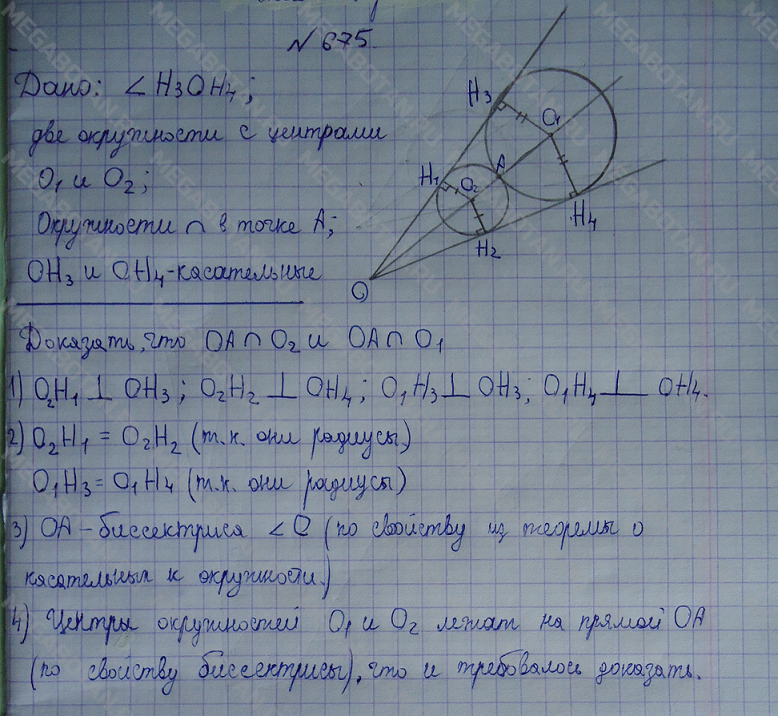 № 675.
Дано: ∠ H3OH4;
две окружности с центрами
O1 и O2;
Окружности ∩ в точке A;
OH3 и OH4-касательные
H3
O1
A
H1
O2
H4
H2
O
Доказать, что OA ∩ O2 и OA ∩ O1
1) O2H1 ⊥ OH3; O2H2 ⊥ OH4; O1H3 ⊥ OH3; O1H4 ⊥ OH4.
2) O2H1 = O2H2 (т.к. они радиусы)
O1H3 = O1H4 (т.к. они радиусы)
3) OA – биссектриса ∠O (по свойству из теоремы о
касательных к окружности.)
4) Центры окружностей O1 и O2 лежат на прямой OA
(по свойству биссектрисы), что и требовалось доказать.
MEGABOTAN.RU